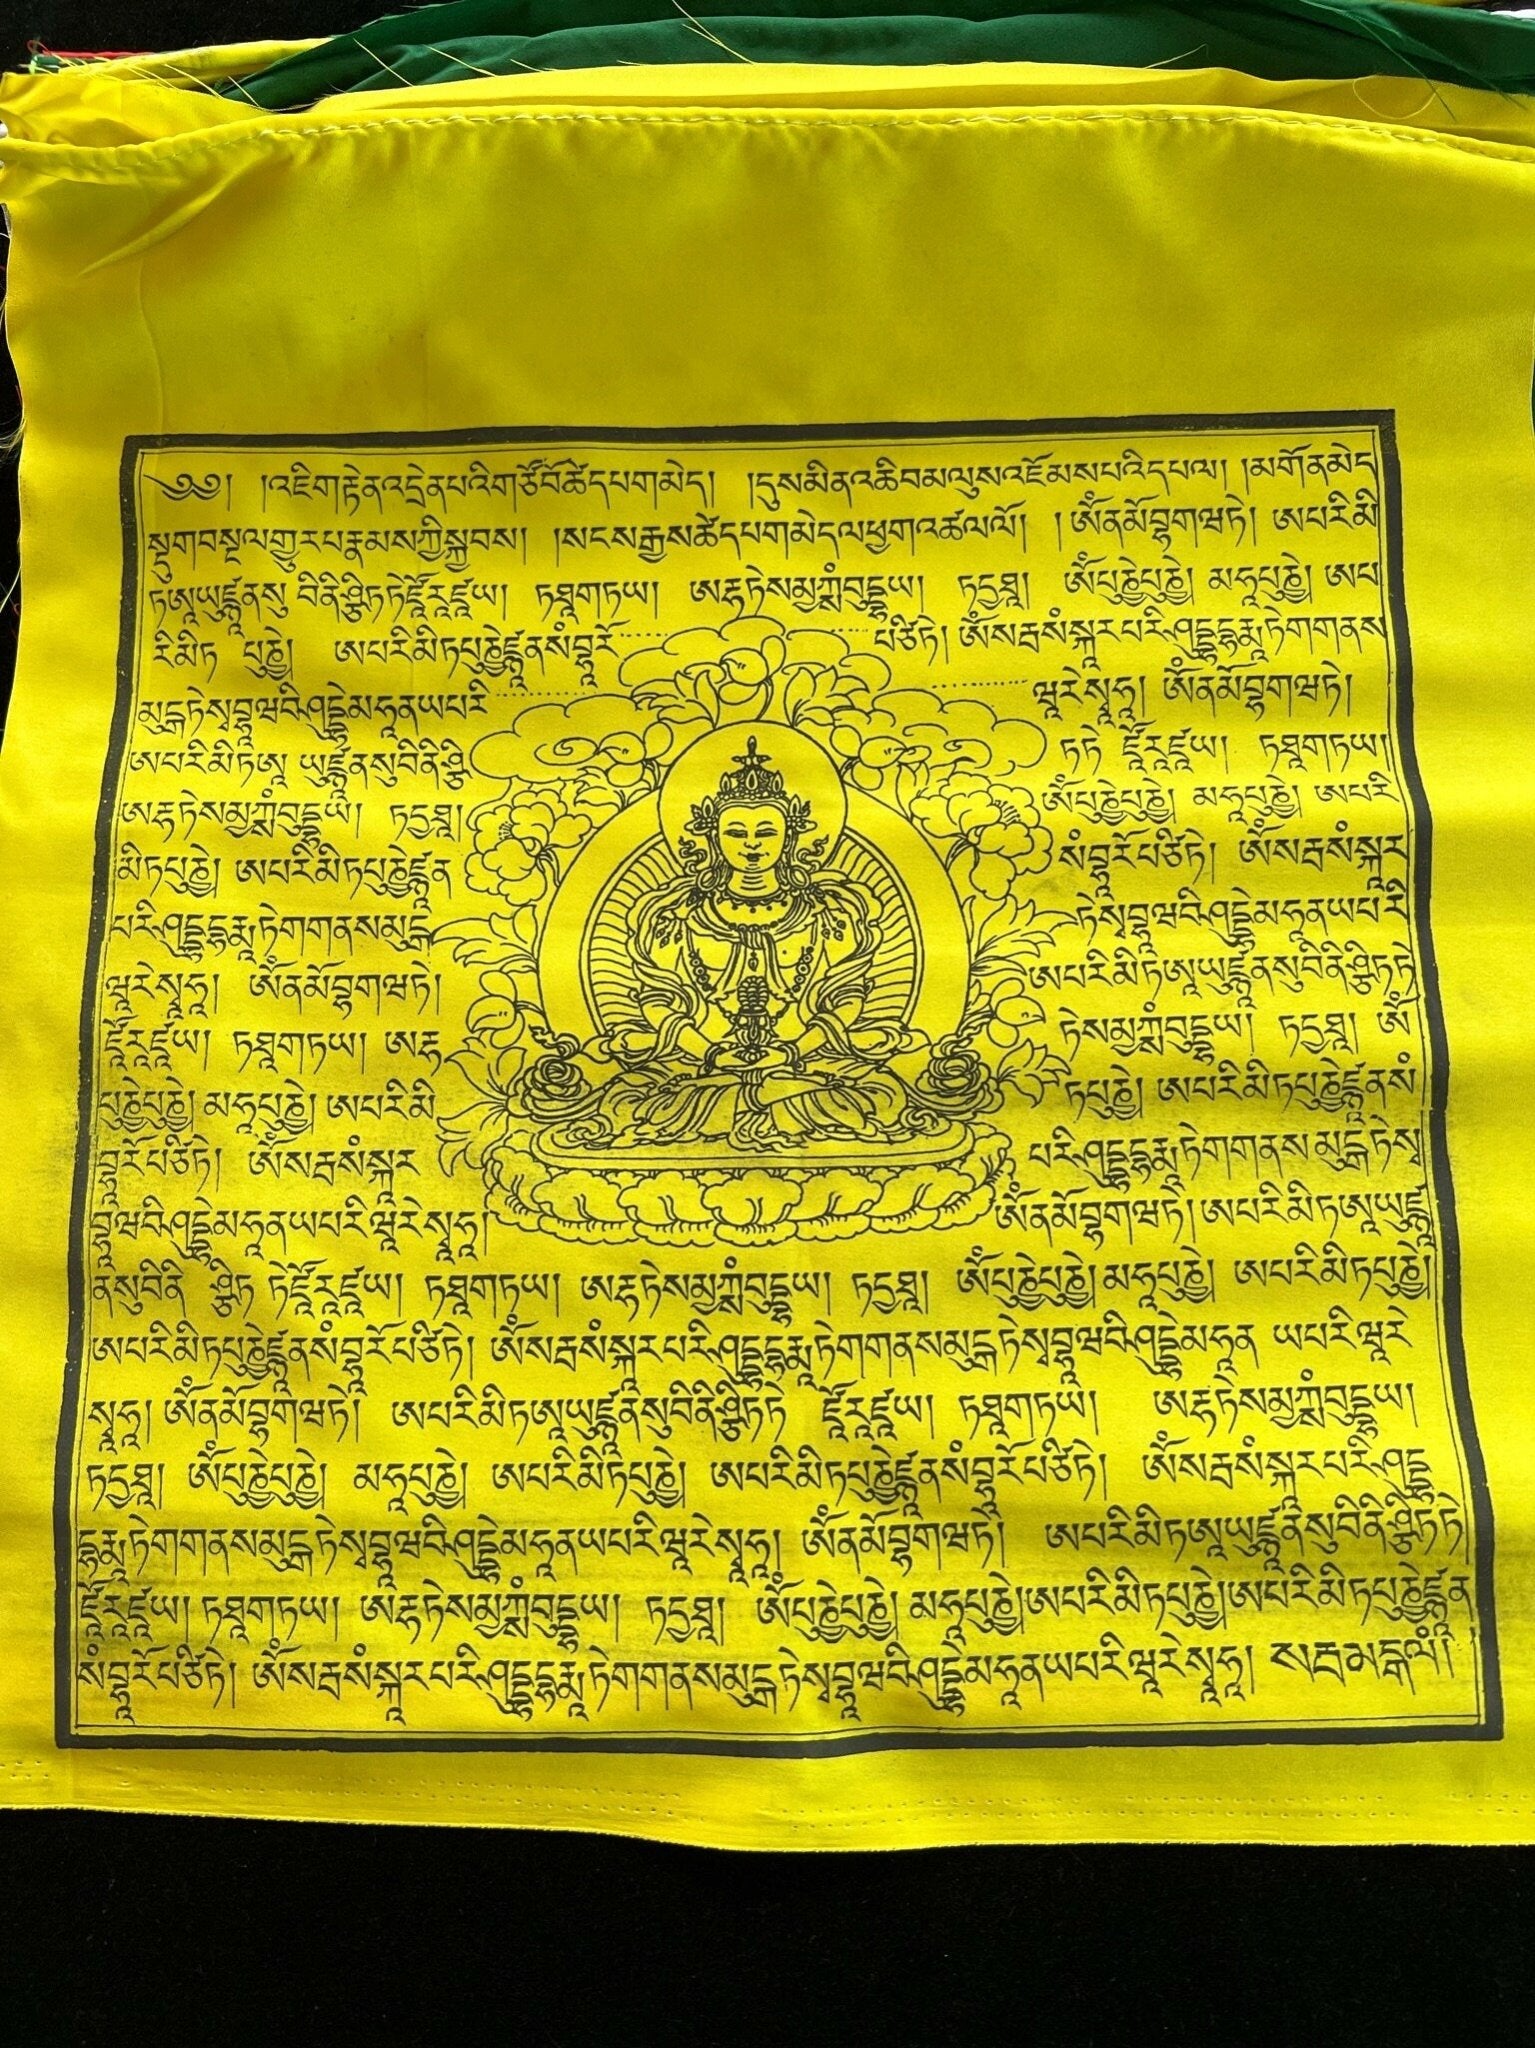 ༄༅། །འཇིག་རྟེན་འདྲེན་པའི་གཙོ་བོ་ཚེ་དཔག་མེད། །དུས་མིན་འཆི་བ་མ་ལུས་འཇོམས་པའི་དཔལ། །མགོན་མེད
སྡུག་བསྔལ་གྱུར་པ་རྣམས་ཀྱི་སྐྱབས། །སངས་རྒྱས་ཚེ་དཔག་མེད་ལ་ཕྱག་འཚལ་ལོ། །ཨོཾ་ན་མོ་བྷ་ག་ཝ་ཏེ། ཨ་པ་རི་མི
ཏ་ཨཱ་ཡུརྫྙཱ་ན་སུ་བི་ནི་ཤྩི་ཏ་ཏེ་ཛོ་རཱ་ཛཱ་ཡ། ཏ་ཐཱ་ག་ཏ་ཡ། ཨརྷ་ཏེ་སམྱཀྶཾ་བུདྡྷ་ཡ། ཏདྱ་ཐཱ། ཨོཾ་པུཎྱེ་པུཎྱེ། མ་ཧཱ་པུཎྱེ། ཨ་པ
རི་མི་ཏ་པུཎྱེ། ཨ་པ་རི་མི་ཏ་པུཎྱེ་ཛྙཱ་ན་སཾ་བྷཱ་རོ པ་ཙི་ཏེ། ཨོཾ་སརྦ་སཾ་སྐཱ་ར་པ་རི་ཤུདྡྷ་དྷརྨཱ་ཏེ་ག་ག་ན་ས
མུདྒ་ཏེ་སྭ་བྷཱ་ཝ་བི་ཤུདྡྷེ་མ་ཧཱ་ན་ཡ་པ་རི ཝཱ་རེ་སྭཱ་ཧཱ། ཨོཾ་ན་མོ་བྷ་ག་ཝ་ཏེ།
ཨ་པ་རི་མི་ཏ་ཨཱ་ཡུརྫྙཱ་ན་སུ་བི་ནི་ཤྩི ཏ་ཏེ་ཛོ་རཱ་ཛཱ་ཡ། ཏ་ཐཱ་ག་ཏ་ཡ།
ཨརྷ་ཏེ་སམྱཀྶཾ་བུདྡྷ་ཡ། ཏདྱ་ཐཱ། ཨོཾ་པུཎྱེ་པུཎྱེ། མ་ཧཱ་པུཎྱེ། ཨ་པ་རི
མི་ཏ་པུཎྱེ། ཨ་པ་རི་མི་ཏ་པུཎྱེ་ཛྙཱ་ན སཾ་བྷཱ་རོ་པ་ཙི་ཏེ། ཨོཾ་སརྦ་སཾ་སྐཱ་ར
པ་རི་ཤུདྡྷ་དྷརྨཱ་ཏེ་ག་ག་ན་ས་མུདྒ ཏེ་སྭ་བྷཱ་ཝ་བི་ཤུདྡྷེ་མ་ཧཱ་ན་ཡ་པ་རི
ཝཱ་རེ་སྭཱ་ཧཱ། ཨོཾ་ན་མོ་བྷ་ག་ཝ་ཏེ། ཨ་པ་རི་མི་ཏ་ཨཱ་ཡུརྫྙཱ་ན་སུ་བི་ནི་ཤྩི་ཏ་ཏེ
ཛོ་རཱ་ཛཱ་ཡ། ཏ་ཐཱ་ག་ཏ་ཡ། ཨརྷ ཏེ་སམྱཀྶཾ་བུདྡྷ་ཡ། ཏདྱ་ཐཱ། ཨོཾ
པུཎྱེ་པུཎྱེ། མ་ཧཱ་པུཎྱེ། ཨ་པ་རི་མི ཏ་པུཎྱེ། ཨ་པ་རི་མི་ཏ་པུཎྱེ་ཛྙཱ་ན་སཾ
བྷཱ་རོ་པ་ཙི་ཏེ། ཨོཾ་སརྦ་སཾ་སྐཱ་ར པ་རི་ཤུདྡྷ་དྷརྨཱ་ཏེ་ག་ག་ན་ས་མུདྒ་ཏེ་སྭ
བྷཱ་ཝ་བི་ཤུདྡྷེ་མ་ཧཱ་ན་ཡ་པ་རི་ཝཱ་རེ་སྭཱ་ཧཱ། ཨོཾ་ན་མོ་བྷ་ག་ཝ་ཏེ། ཨ་པ་རི་མི་ཏ་ཨཱ་ཡུརྫྙཱ
ན་སུ་བི་ནི་ཤྩི་ཏ་ཏེ་ཛོ་རཱ་ཛཱ་ཡ། ཏ་ཐཱ་ག་ཏ་ཡ། ཨརྷ་ཏེ་སམྱཀྶཾ་བུདྡྷ་ཡ། ཏདྱ་ཐཱ། ཨོཾ་པུཎྱེ་པུཎྱེ། མ་ཧཱ་པུཎྱེ། ཨ་པ་རི་མི་ཏ་པུཎྱེ།
ཨ་པ་རི་མི་ཏ་པུཎྱེ་ཛྙཱ་ན་སཾ་བྷཱ་རོ་པ་ཙི་ཏེ། ཨོཾ་སརྦ་སཾ་སྐཱ་ར་པ་རི་ཤུདྡྷ་དྷརྨཱ་ཏེ་ག་ག་ན་ས་མུདྒ་ཏེ་སྭ་བྷཱ་ཝ་བི་ཤུདྡྷེ་མ་ཧཱ་ན་ཡ་པ་རི་ཝཱ་རེ
སྭཱ་ཧཱ། ཨོཾ་ན་མོ་བྷ་ག་ཝ་ཏེ། ཨ་པ་རི་མི་ཏ་ཨཱ་ཡུརྫྙཱ་ན་སུ་བི་ནི་ཤྩི་ཏ་ཏེ་ཛོ་རཱ་ཛཱ་ཡ། ཏ་ཐཱ་ག་ཏ་ཡ། ཨརྷ་ཏེ་སམྱཀྶཾ་བུདྡྷ་ཡ།
ཏདྱ་ཐཱ། ཨོཾ་པུཎྱེ་པུཎྱེ། མ་ཧཱ་པུཎྱེ། ཨ་པ་རི་མི་ཏ་པུཎྱེ། ཨ་པ་རི་མི་ཏ་པུཎྱེ་ཛྙཱ་ན་སཾ་བྷཱ་རོ་པ་ཙི་ཏེ། ཨོཾ་སརྦ་སཾ་སྐཱ་ར་པ་རི་ཤུདྡྷ
དྷརྨཱ་ཏེ་ག་ག་ན་ས་མུདྒ་ཏེ་སྭ་བྷཱ་ཝ་བི་ཤུདྡྷེ་མ་ཧཱ་ན་ཡ་པ་རི་ཝཱ་རེ་སྭཱ་ཧཱ། ཨོཾ་ན་མོ་བྷ་ག་ཝ་ཏེ། ཨ་པ་རི་མི་ཏ་ཨཱ་ཡུརྫྙཱ་ན་སུ་བི་ནི་ཤྩི་ཏ་ཏེ
ཛོ་རཱ་ཛཱ་ཡ། ཏ་ཐཱ་ག་ཏ་ཡ། ཨརྷ་ཏེ་སམྱཀྶཾ་བུདྡྷ་ཡ། ཏདྱ་ཐཱ། ཨོཾ་པུཎྱེ་པུཎྱེ། མ་ཧཱ་པུཎྱེ། ཨ་པ་རི་མི་ཏ་པུཎྱེ། ཨ་པ་རི་མི་ཏ་པུཎྱེ་ཛྙཱ་ན
སཾ་བྷཱ་རོ་པ་ཙི་ཏེ། ཨོཾ་སརྦ་སཾ་སྐཱ་ར་པ་རི་ཤུདྡྷ་དྷརྨཱ་ཏེ་ག་ག་ན་ས་མུདྒ་ཏེ་སྭ་བྷཱ་ཝ་བི་ཤུདྡྷེ་མ་ཧཱ་ན་ཡ་པ་རི་ཝཱ་རེ་སྭཱ་ཧཱ། སརྦ་མངྒ་ལཾ།